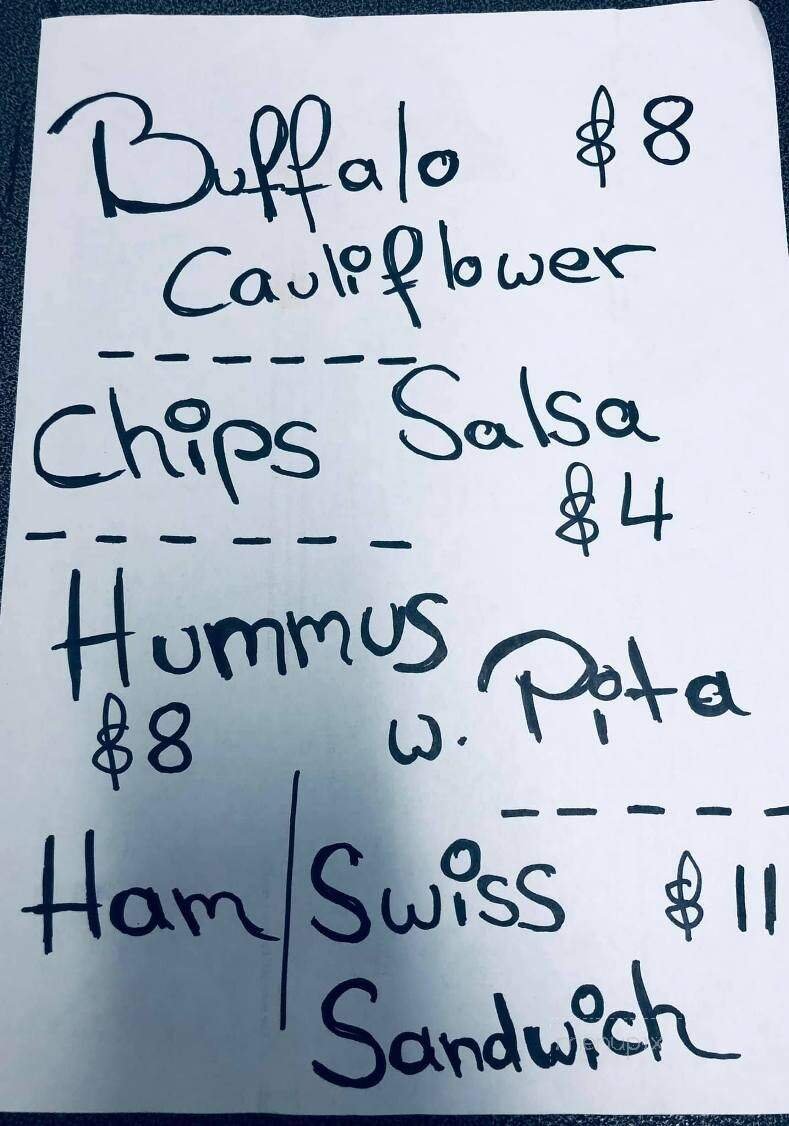 Buffalo $8
Cauliflower
Chips Salsa
$4
Hummus
$8 w. Pita
Ham/Swiss $11
Sandwich